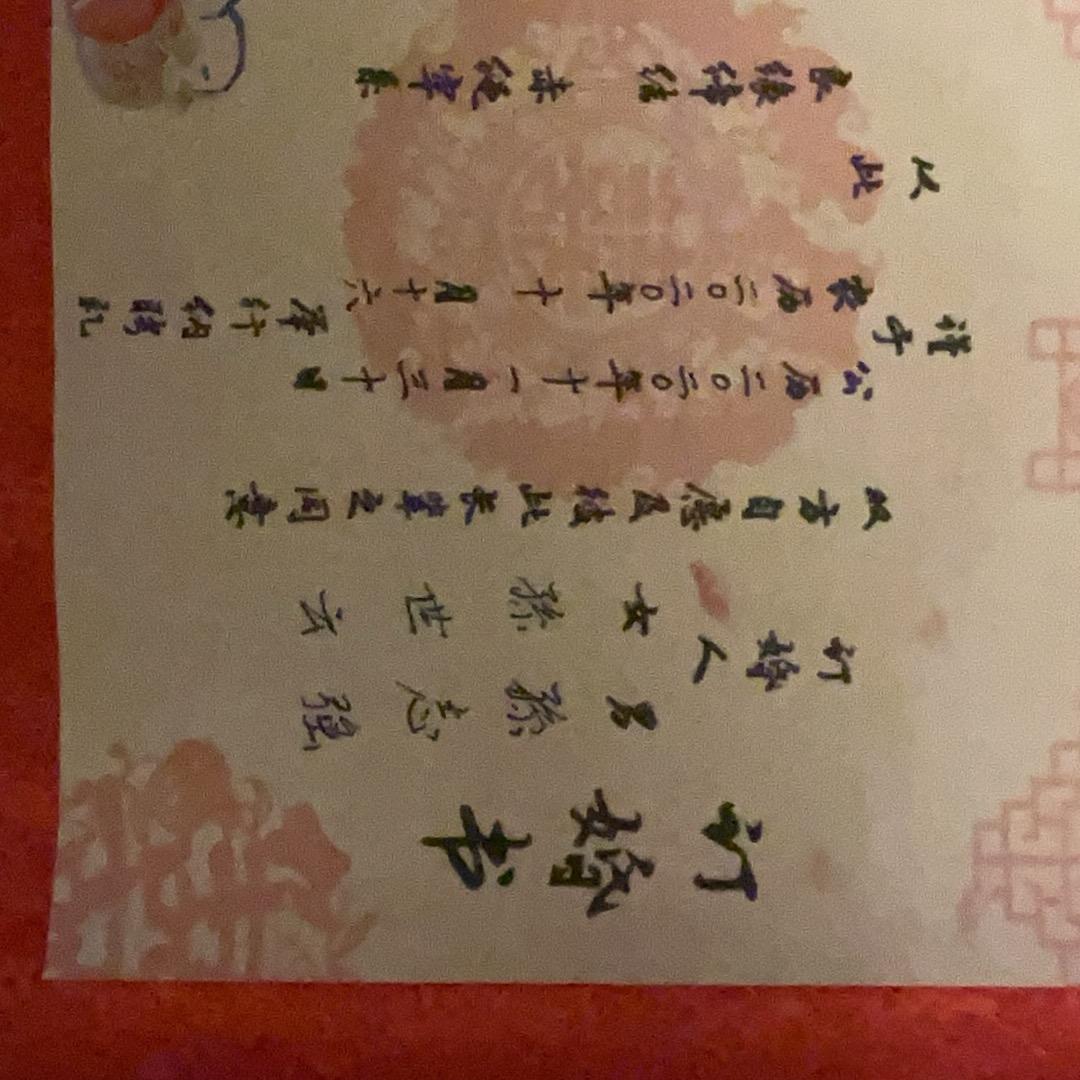 订婚书
订婚人
男 孙志强
女 孙世云
双方自愿及彼此长辈之同意
谨于
公历二〇二〇年十一月三十日
农历二〇二〇年十月十六
举行纳聘礼
以此
良缘缔结 赤绳牵系